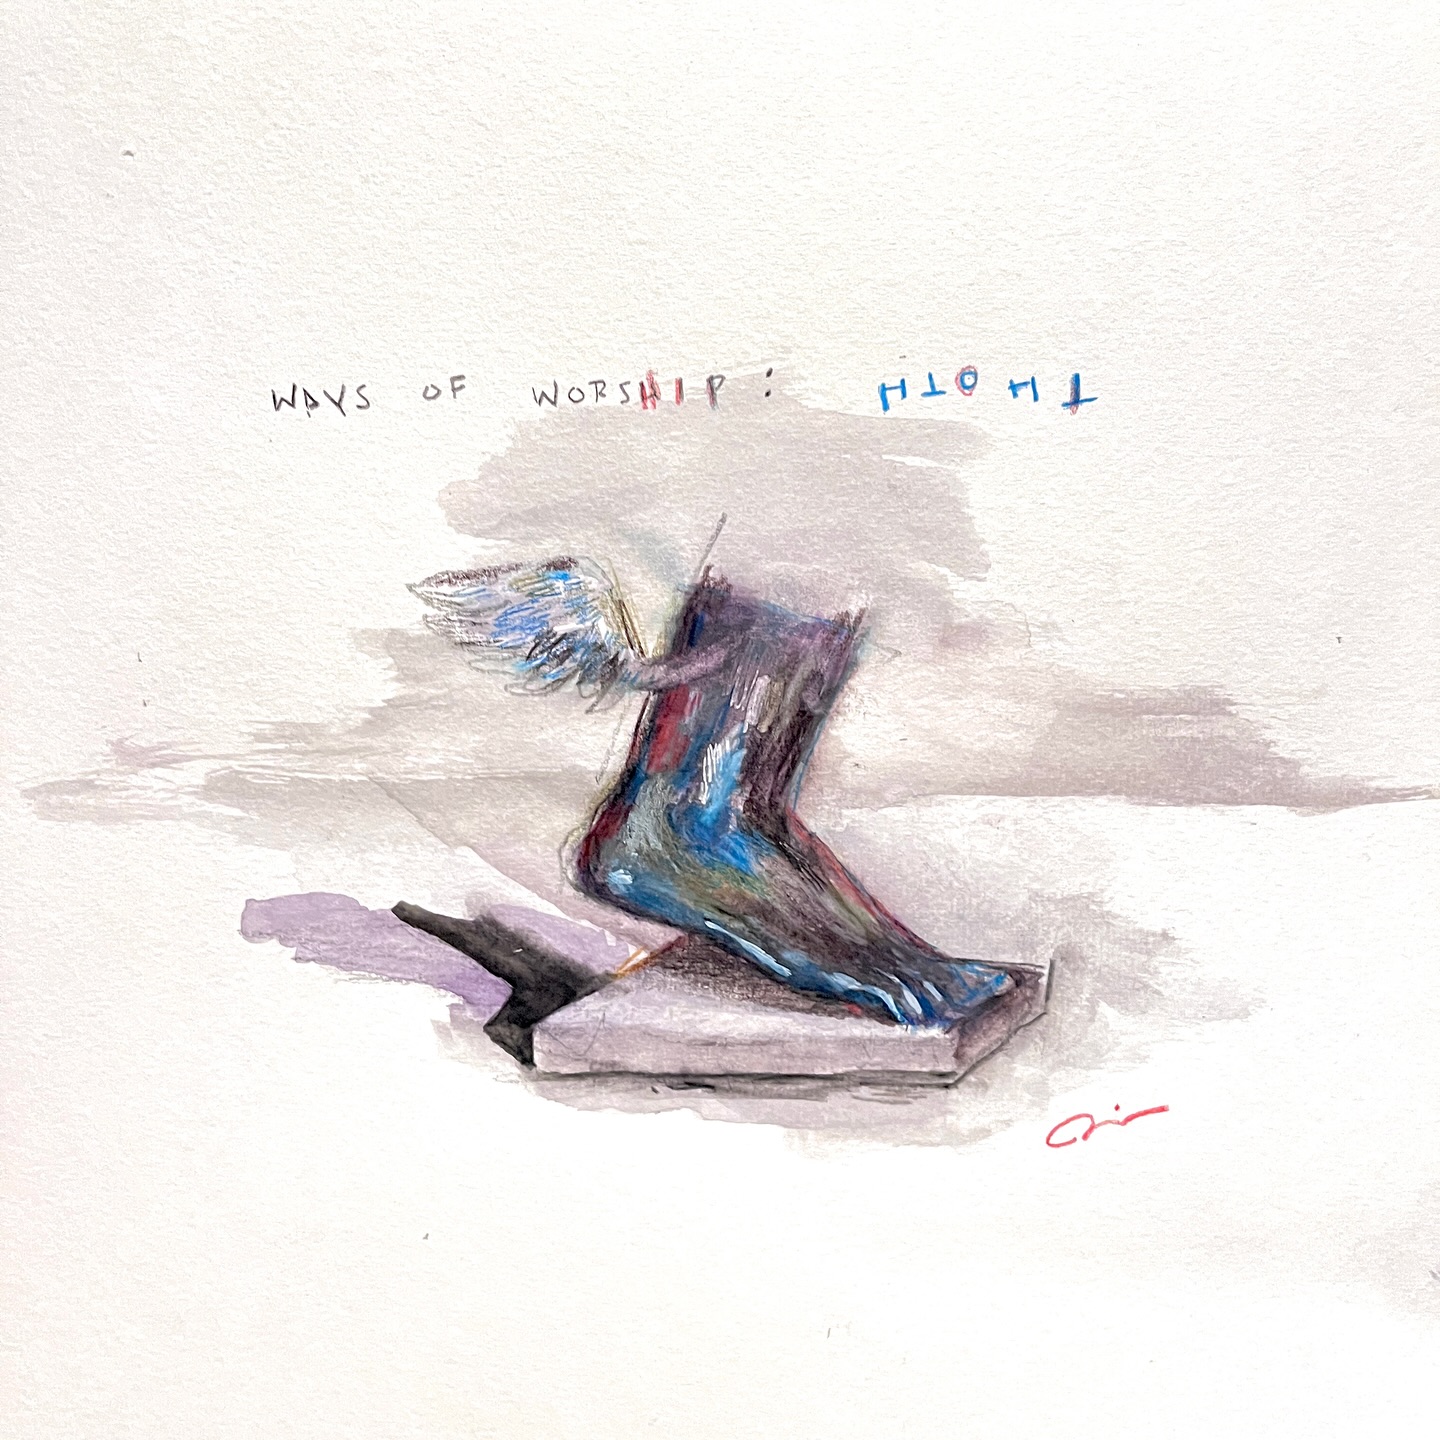 WAYS OF WORSHIP: THOTH